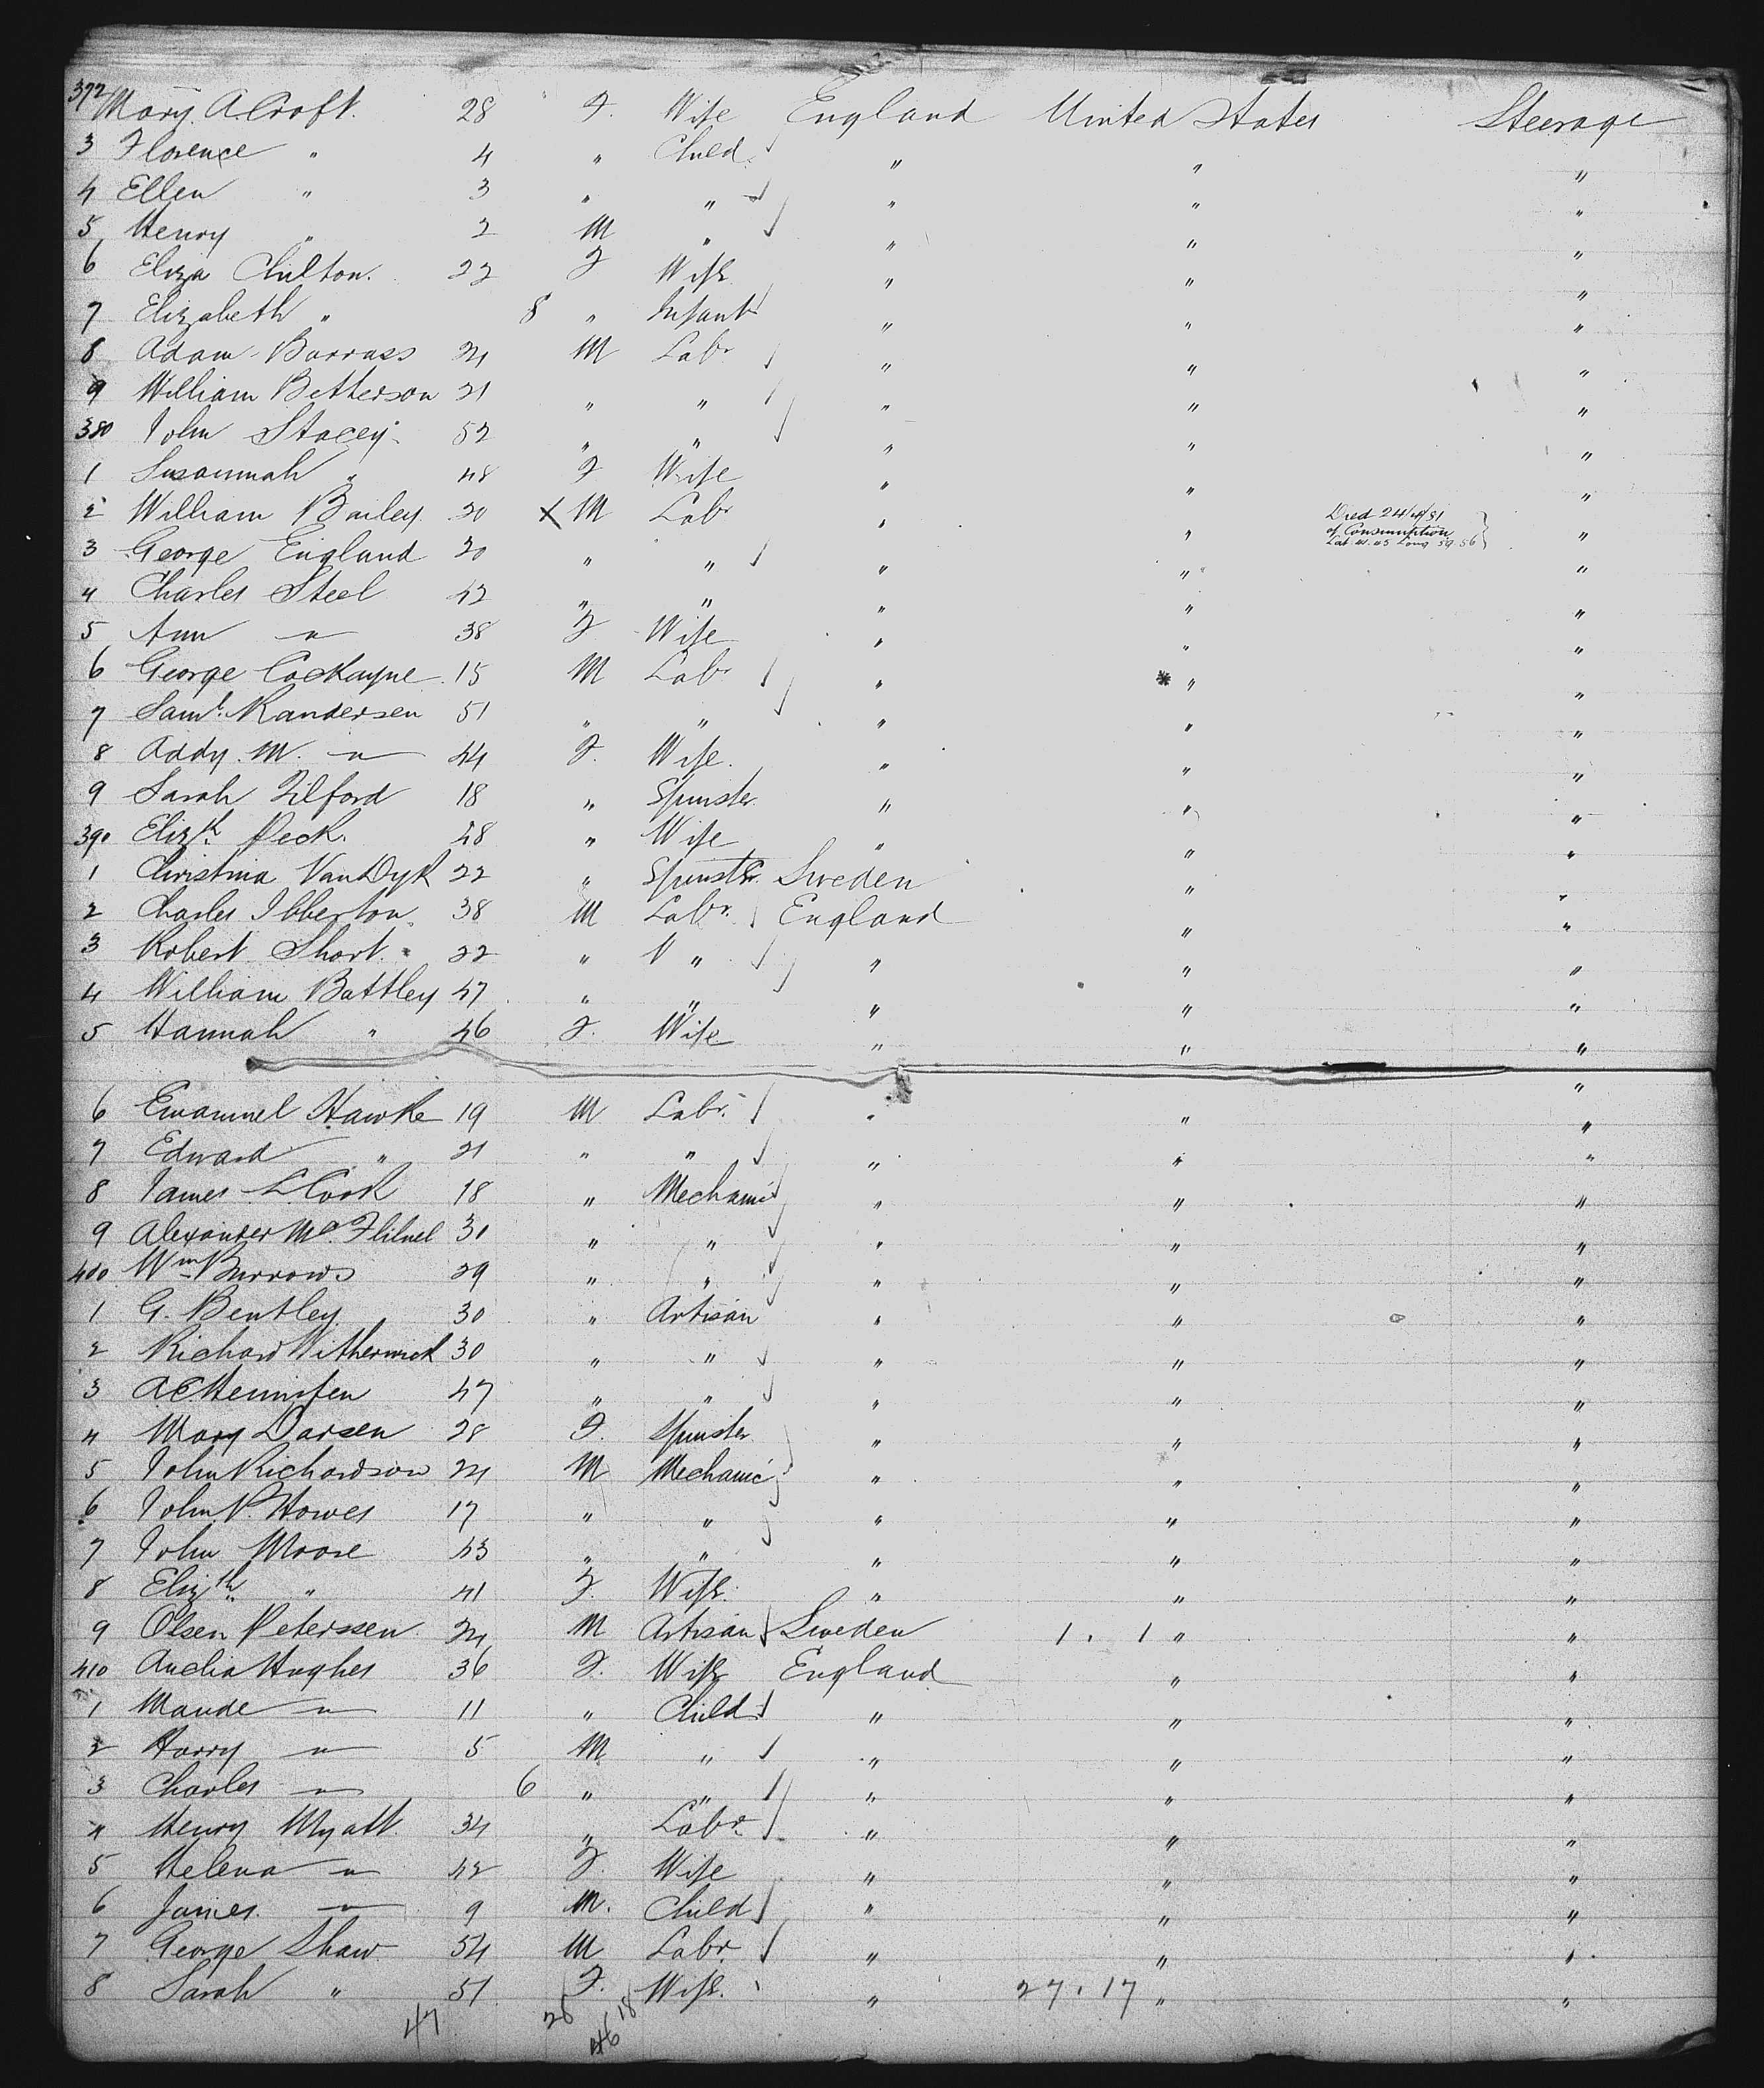 372 Mary A Croft. 28 F. Wife England United States Steerage
3 Florence " 4 " Child " " "
4 Ellen " 3 " " " " "
5 Henry " 2 M " " " "
6 Eliza Chilton. 22 F Wife " " "
7 Elizabeth " 8 " Infant " " "
8 Adam Barrass 24 M Labr " " "
9 William Betterson 21 " " " " "
380 John Stacey 52 " " " " "
1 Susannah " 48 F Wife " " "
2 William Bailey 20 X M Labr " " Died 24/4/81 of Consumption Lat 41.45 Long 59 56 "
3 George England 20 " " " " "
4 Charles Steel 42 " " " " "
5 Ann " 38 F Wife " " "
6 George Cockayne 15 M Labr " * " "
7 Saml. Randersen 51 " " " " "
8 Addy. M. " 44 F. Wife. " " "
9 Sarah Tilford 18 " Spinster " " "
390 Elizth Peck. 48 " Wife " " "
1 Christina VanDyk 22 " Spinster. Sweden " "
2 Charles Ibberton 38 M Labr. England " "
3 Robert Short. 22 " " " " "
4 William Battley 47 " " " " "
5 Hannah " 46 F. Wife " " "
6 Emamnel Hawke 19 M Labr. " " "
7 Edward " 21 " " " " "
8 James L. Cook 18 " Mechanic " " "
9 Alexander Mc. 30 " " " " "
400 Wm Burrows 29 " " " " "
1 G. Bentley 30 " Artisan " " "
2 Richard Witherwick 30 " " " " "
3 A.C. 47 " " " " "
4 Mary Darsen 28 F. Spinster " " "
5 John Richardson 24 M Mechanic " " "
6 John P. Howes 17 " " " " "
7 John Moore 43 " " " " "
8 Elizth " 41 F. Wife. " " "
9 Olsen Peterssen 24 M Artisan Sweden 1 . 1 " "
410 Audia Hughes 36 F. Wife England " "
1 Maude " 11 " Child " " "
2 Harry " 5 M " " " "
3 Charles " 6 " " " " "
4 Henry Wyatt. 34 " Labr " " "
5 Helena " 42 F. Wife " " "
6 James. " 9 M. Child " " "
7 George Shaw 54 M Labr. " " "
8 Sarah " 51 F. Wife. " 27 . 17 " "
47 28 18
46